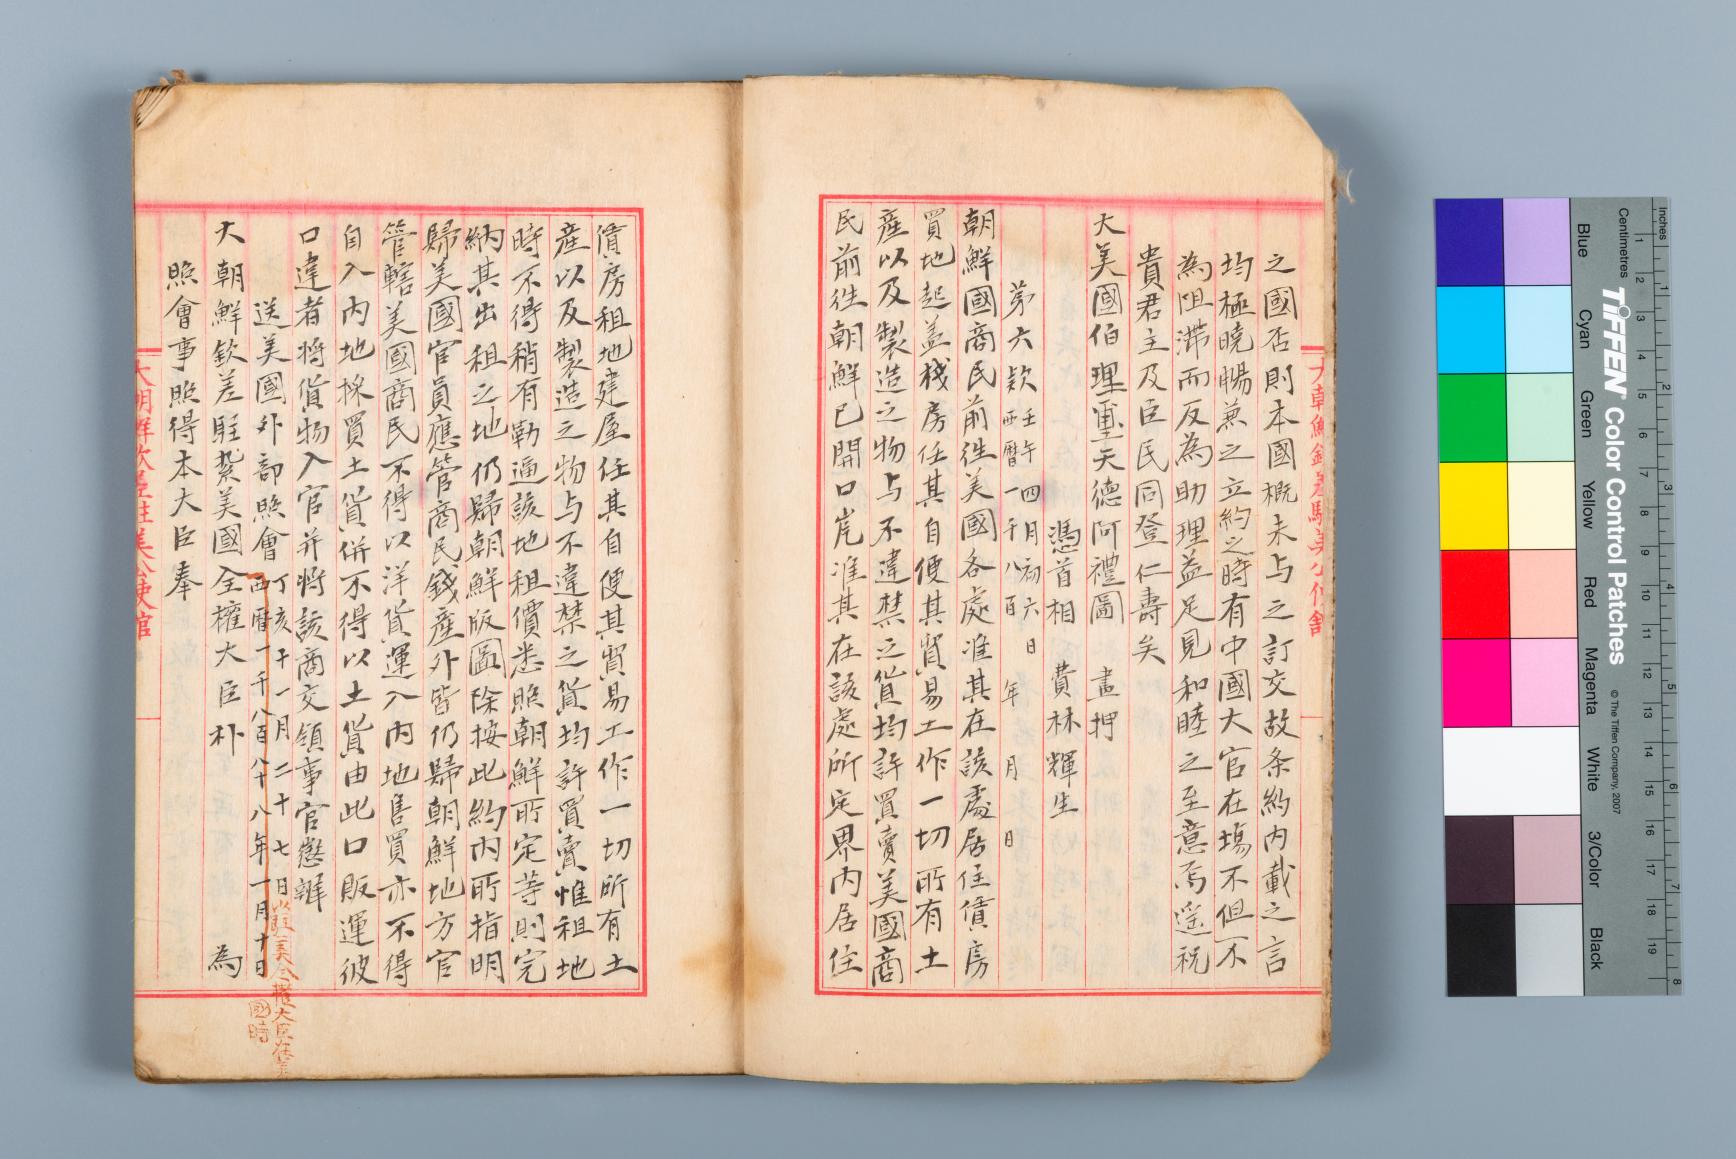 之國否則本國概未与之訂交故条約内載之言
均極曉暢兼之立約之時有中國大官在場不但不
為阻滯而反為助理益足見和睦之至意焉遙祝
貴君主及臣民同登仁壽矣
大美國伯理璽天德阿禮圖 畫押
憑首相 費林輝生
年 月 日
第六款 壬午四月初六日
西曆一千八百
朝鮮國商民前徃美國各處准其在該處居住賃房
買地起盖棧房任其自便其貿易工作一切所有土
産以及製造之物与不違禁之貨均許買賣美國商
民前徃朝鮮已開口岸准其在該處所定界內居住
賃房租地建屋任其自便其貿易工作一切所有土
産以及製造之物与不違禁之貨均許買賣惟租地
時不得稍有勒逼該地租價悉照朝鮮所定等則完
納其出租之地仍歸朝鮮版圖除按此約內所指明
歸美國官員應管商民錢産外皆仍歸朝鮮地方官
管轄美國商民不得以洋貨運入內地售買亦不得
自入內地採買土貨併不得以土貨由此口販運彼
口違者將貨物入官并將該商交領事官懲辦
送美國外部照會 丁亥十一月二十七日
西曆一千八百八十八年一月十日
駐美全權大臣在美
國時
大朝鮮欽差駐紮美國全權大臣朴 為
照會事照得本大臣奉
大朝鮮欽差駐美公使館
Inches
Centimetres
TIFFEN Color Control Patches
© The Tiffen Company, 2007
Blue
Cyan
Green
Yellow
Red
Magenta
White
3/Color
Black
1 2 3 4 5 6 7 8
1 2 3 4 5 6 7 8 9 10 11 12 13 14 15 16 17 18 19